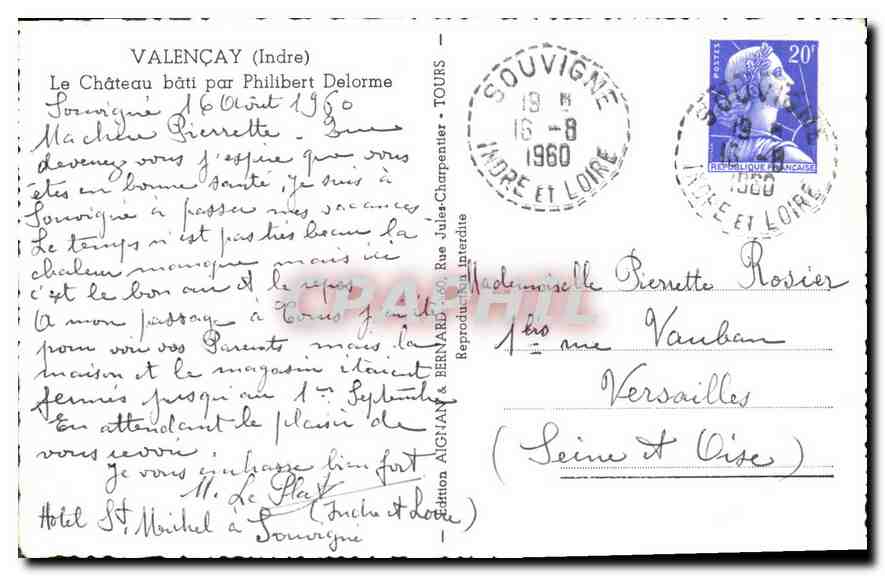 VALENÇAY (Indre)
Le Château bâti par Philibert Delorme
Souvigné 16 Août 1960
Ma chère Pierrette - Que
devenez vous j'espère que vous
êtes en bonne santé, je suis à
Souvigné à passer mes vacances
Le temps n'est pas très beau la
chaleur manque mais ici
c'est le bon air et le repos
A mon passage à Tours j'ai été
pour voir vos Parents mais la
maison et le magasin étaient
fermés jusqu'au 1er Septembre
En attendant le plaisir de
vous revoir.
Je vous embrasse bien fort
M. Le Plat
Hotel St Michel à Souvigné
(Indre et Loire)
Edition AIGNAN & BERNARD, 60, Rue Jules-Charpentier - TOURS
Reproduction interdite
SOUVIGNE
19
16 - 8
1960
INDRE ET LOIRE
POSTES
20F
REPUBLIQUE FRANÇAISE
SOUVIGNE
19 -
16 - 8
1960
INDRE ET LOIRE
Mademoiselle Pierrette Rosier
rue Vauban
Versailles
(Seine et Oise)
CPAPHIL